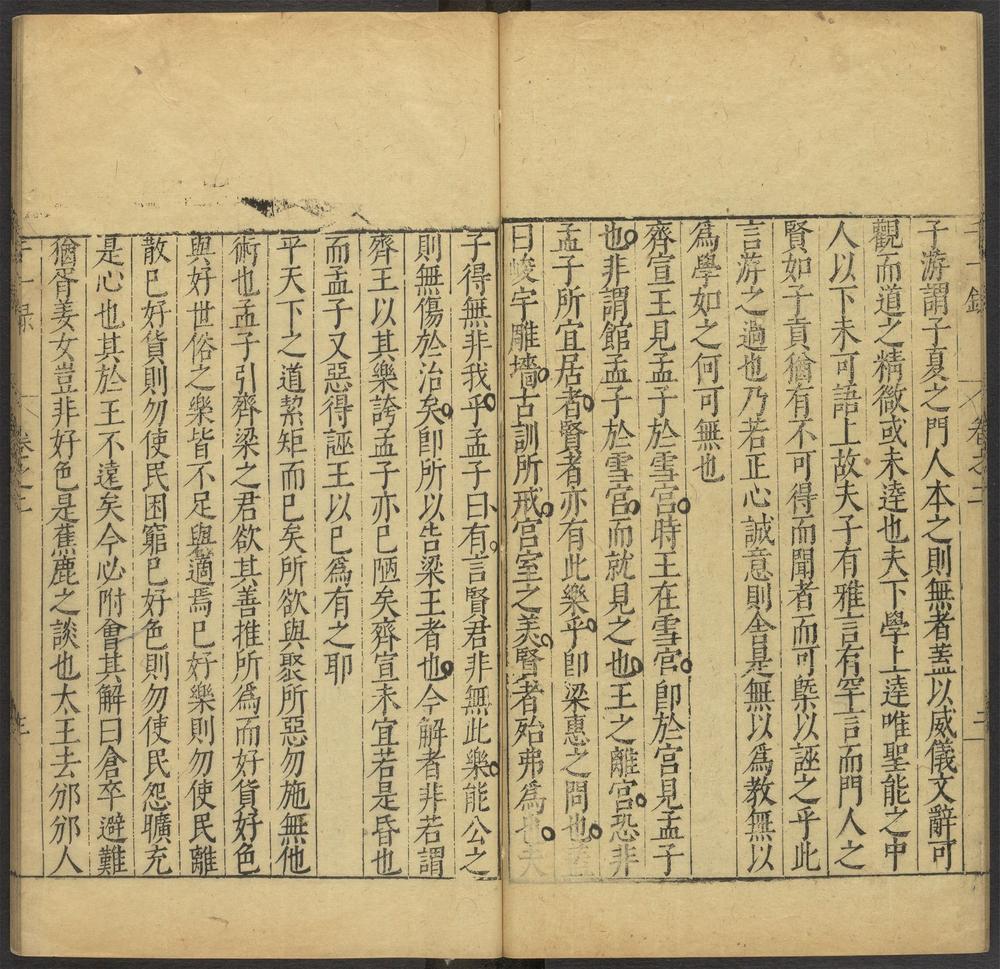 子游謂子夏之門人本之則無者蓋以威儀文辭可
觀而道之精微或未達也夫下學上達唯聖能之中
人以下未可語上故夫子有雅言有罕言而門人之
賢如子貢猶有不可得而聞者而可槩以誣之乎此
言游之過也乃若正心誠意則舍是無以為教無以
為學如之何可無也
齊宣王見孟子於雪宮時王在雪宮卽於宮見孟子
也非謂館孟子於雪宮而就見之也王之離宮恐非
孟子所宜居者賢者亦有此樂乎卽梁惠之問也蓋
曰峻宇雕墻古訓所戒宮室之美賢者殆弗為也夫
子得無非我乎孟子曰有言賢君非無此樂能公之
則無傷於治矣卽所以告梁王者也今解者非若謂
齊王以其樂誇孟子亦已陋矣齊宣未宜若是昏也
而孟子又惡得誣王以已為有之耶
平天下之道絜矩而已矣所欲與聚所惡勿施無他
術也孟子引齊梁之君欲其善推所為而好貨好色
與好世俗之樂皆不足與適焉已好樂則勿使民離
散已好貨則勿使民困窮已好色則勿使民怨曠充
是心也其於王不遠矣今必附會其解曰倉卒避難
猶胥姜女豈非好色是蕉鹿之談也太王去邠邠人
卷之二